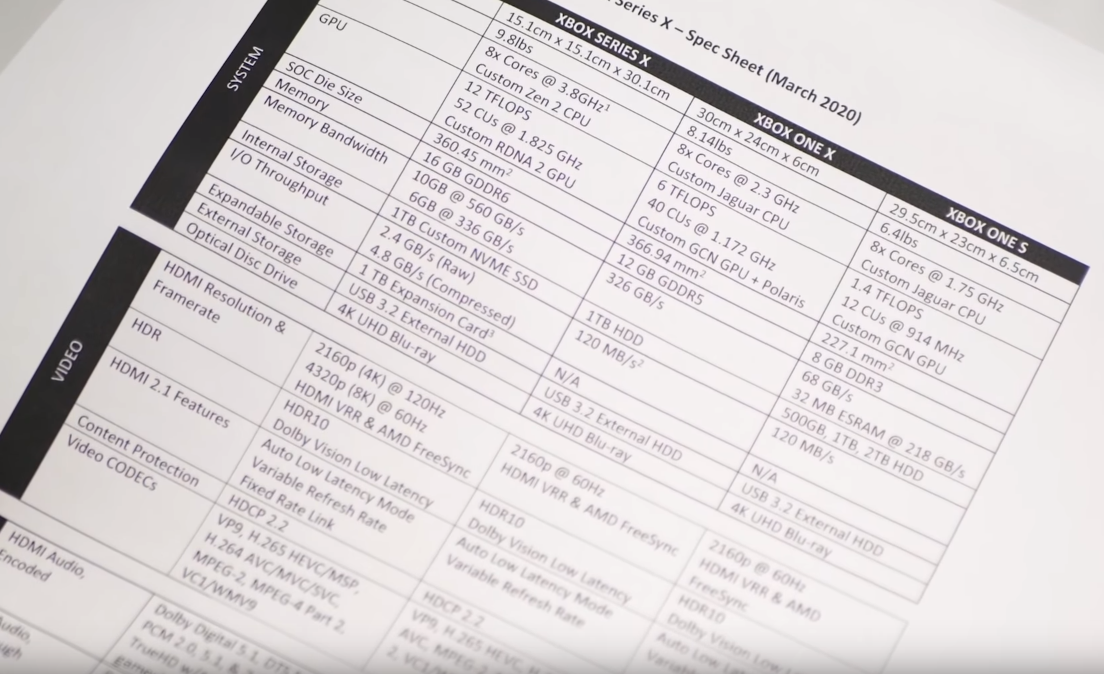 Series X – Spec Sheet (March 2020)
XBOX SERIES X
XBOX ONE X
XBOX ONE S
SYSTEM
15.1cm x 15.1cm x 30.1cm
30cm x 24cm x 6cm
29.5cm x 23cm x 6.5cm
9.8lbs
8.14lbs
6.4lbs
8x Cores @ 3.8GHz¹
Custom Zen 2 CPU
8x Cores @ 2.3 GHz
Custom Jaguar CPU
8x Cores @ 1.75 GHz
Custom Jaguar CPU
GPU
12 TFLOPS
52 CUs @ 1.825 GHz
Custom RDNA 2 GPU
6 TFLOPS
40 CUs @ 1.172 GHz
Custom GCN GPU + Polaris
1.4 TFLOPS
12 CUs @ 914 MHz
Custom GCN GPU
SOC Die Size
360.45 mm²
366.94 mm²
227.1 mm²
Memory
16 GB GDDR6
12 GB GDDR5
8 GB DDR3
Memory Bandwidth
10GB @ 560 GB/s
6GB @ 336 GB/s
326 GB/s
68 GB/s
32 MB ESRAM @ 218 GB/s
Internal Storage
1TB Custom NVME SSD
1TB HDD
500GB, 1TB, 2TB HDD
I/O Throughput
2.4 GB/s (Raw)
4.8 GB/s (Compressed)
120 MB/s²
120 MB/s
Expandable Storage
1 TB Expansion Card³
N/A
N/A
External Storage
USB 3.2 External HDD
USB 3.2 External HDD
USB 3.2 External HDD
Optical Disc Drive
4K UHD Blu-ray
4K UHD Blu-ray
4K UHD Blu-ray
VIDEO
HDMI Resolution &
Framerate
2160p (4K) @ 120Hz
4320p (8K) @ 60Hz
HDMI VRR & AMD FreeSync
2160p @ 60Hz
HDMI VRR & AMD FreeSync
2160p @ 60Hz
HDMI VRR & AMD
FreeSync
HDR
HDR10
Dolby Vision Low Latency
HDR10
Dolby Vision Low Latency
HDR10
Dolby Vision Low
HDMI 2.1 Features
Auto Low Latency Mode
Variable Refresh Rate
Fixed Rate Link
Auto Low Latency Mode
Variable Refresh Rate
Auto Low
Content Protection
HDCP 2.2
HDCP 2.2
Video CODECs
VP9, H.265 HEVC/MSP,
H.264 AVC/MVC/SVC,
MPEG-2, MPEG-4 Part 2,
VC1/WMV9
VP9, H.265 HEVC,
AVC, MPEG-2,
HDMI Audio,
Encoded
Dolby Digital 5.1,
PCM 2.0, 5.1, &
TrueHD